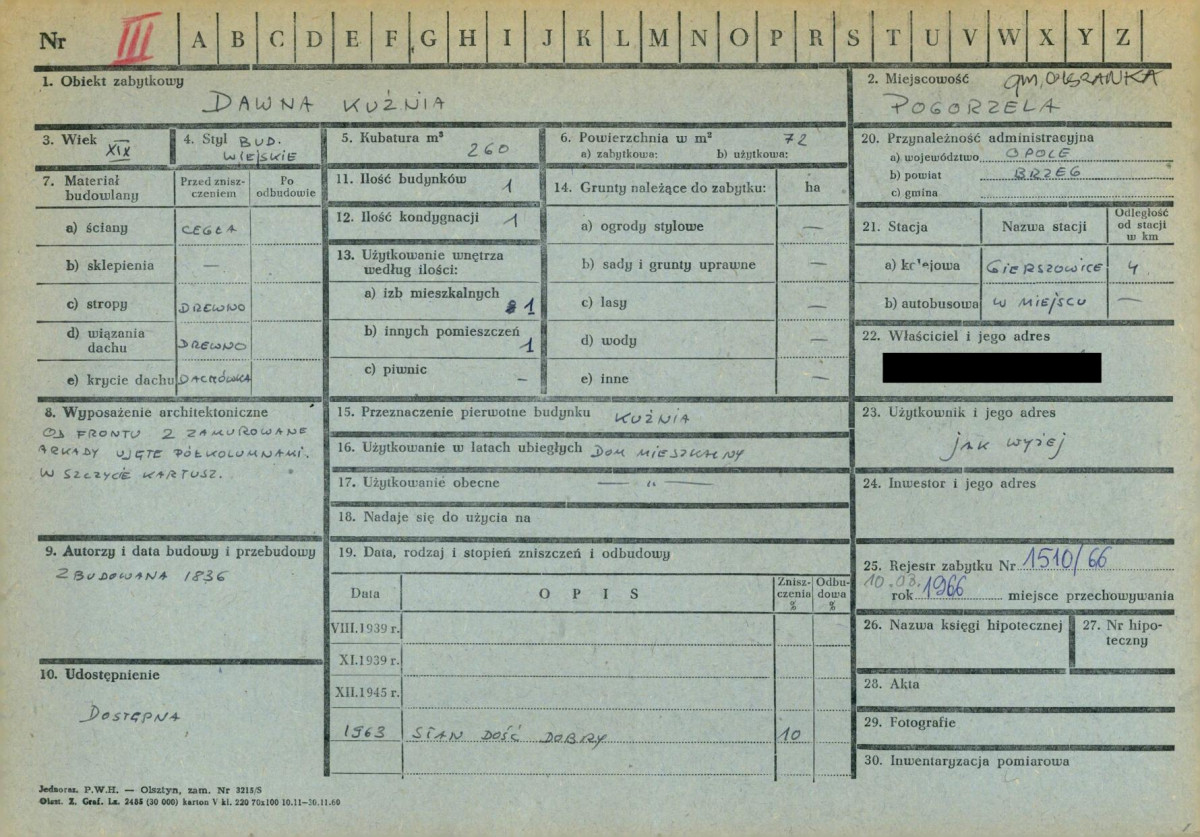 Nr III A B C D E F G H I J K L M N O P R S T U V W X Y Z
1. Obiekt zabytkowy
DAWNA KUŹNIA
2. Miejscowość gm. OLSZANKA
POGORZELA
3. Wiek XIX
4. Styl BUD.
WIEJSKIE
5. Kubatura m³
260
6. Powierzchnia w m² 72
a) zabytkowa: b) użytkowa:
7. Materiał budowlany
Przed zniszczeniem
Po odbudowie
a) ściany CEGŁA
b) sklepienia —
c) stropy DREWNO
d) wiązania dachu DREWNO
e) krycie dachu DACHÓWKA
8. Wyposażenie architektoniczne
OD FRONTU 2 ZAMUROWANE
ARKADY UJĘTE PÓŁKOLUMNAMI.
W SZCZYCIE KARTUSZ.
9. Autorzy i data budowy i przebudowy
ZBUDOWANA 1836
10. Udostępnienie
DOSTĘPNA
11. Ilość budynków 1
12. Ilość kondygnacji 1
13. Użytkowanie wnętrza
według ilości:
a) izb mieszkalnych 1
b) innych pomieszczeń
1
c) piwnic —
14. Grunty należące do zabytku: ha
a) ogrody stylowe —
b) sady i grunty uprawne —
c) lasy —
d) wody —
e) inne —
15. Przeznaczenie pierwotne budynku KUŹNIA
16. Użytkowanie w latach ubiegłych DOM MIESZKALNY
17. Użytkowanie obecne — " —
18. Nadaje się do użycia na
19. Data, rodzaj i stopień zniszczeń i odbudowy
Data
OPIS
Zniszczenia %
Odbudowa %
VIII.1939 r.
XI.1939 r.
XII.1945 r.
1963 STAN DOŚĆ DOBRY 10
20. Przynależność administracyjna
a) województwo OPOLE
b) powiat BRZEG
c) gmina
21. Stacja
Nazwa stacji
Odległość
od stacji
w km
a) kolejowa GIERSZOWICE 4
b) autobusowa W MIEJSCU —
22. Właściciel i jego adres
23. Użytkownik i jego adres
jak wyżej
24. Inwestor i jego adres
25. Rejestr zabytku Nr 1510/66
10.03.
rok 1966 miejsce przechowywania
26. Nazwa księgi hipotecznej
27. Nr hipo-
teczny
28. Akta
29. Fotografie
30. Inwentaryzacja pomiarowa
Jednoraz. P.W.H. — Olsztyn, zam. Nr 3215/S
Olszt. Z. Graf. Lz. 2455 (30 000) karton V kl. 220 70x100 10.11-30.11.60